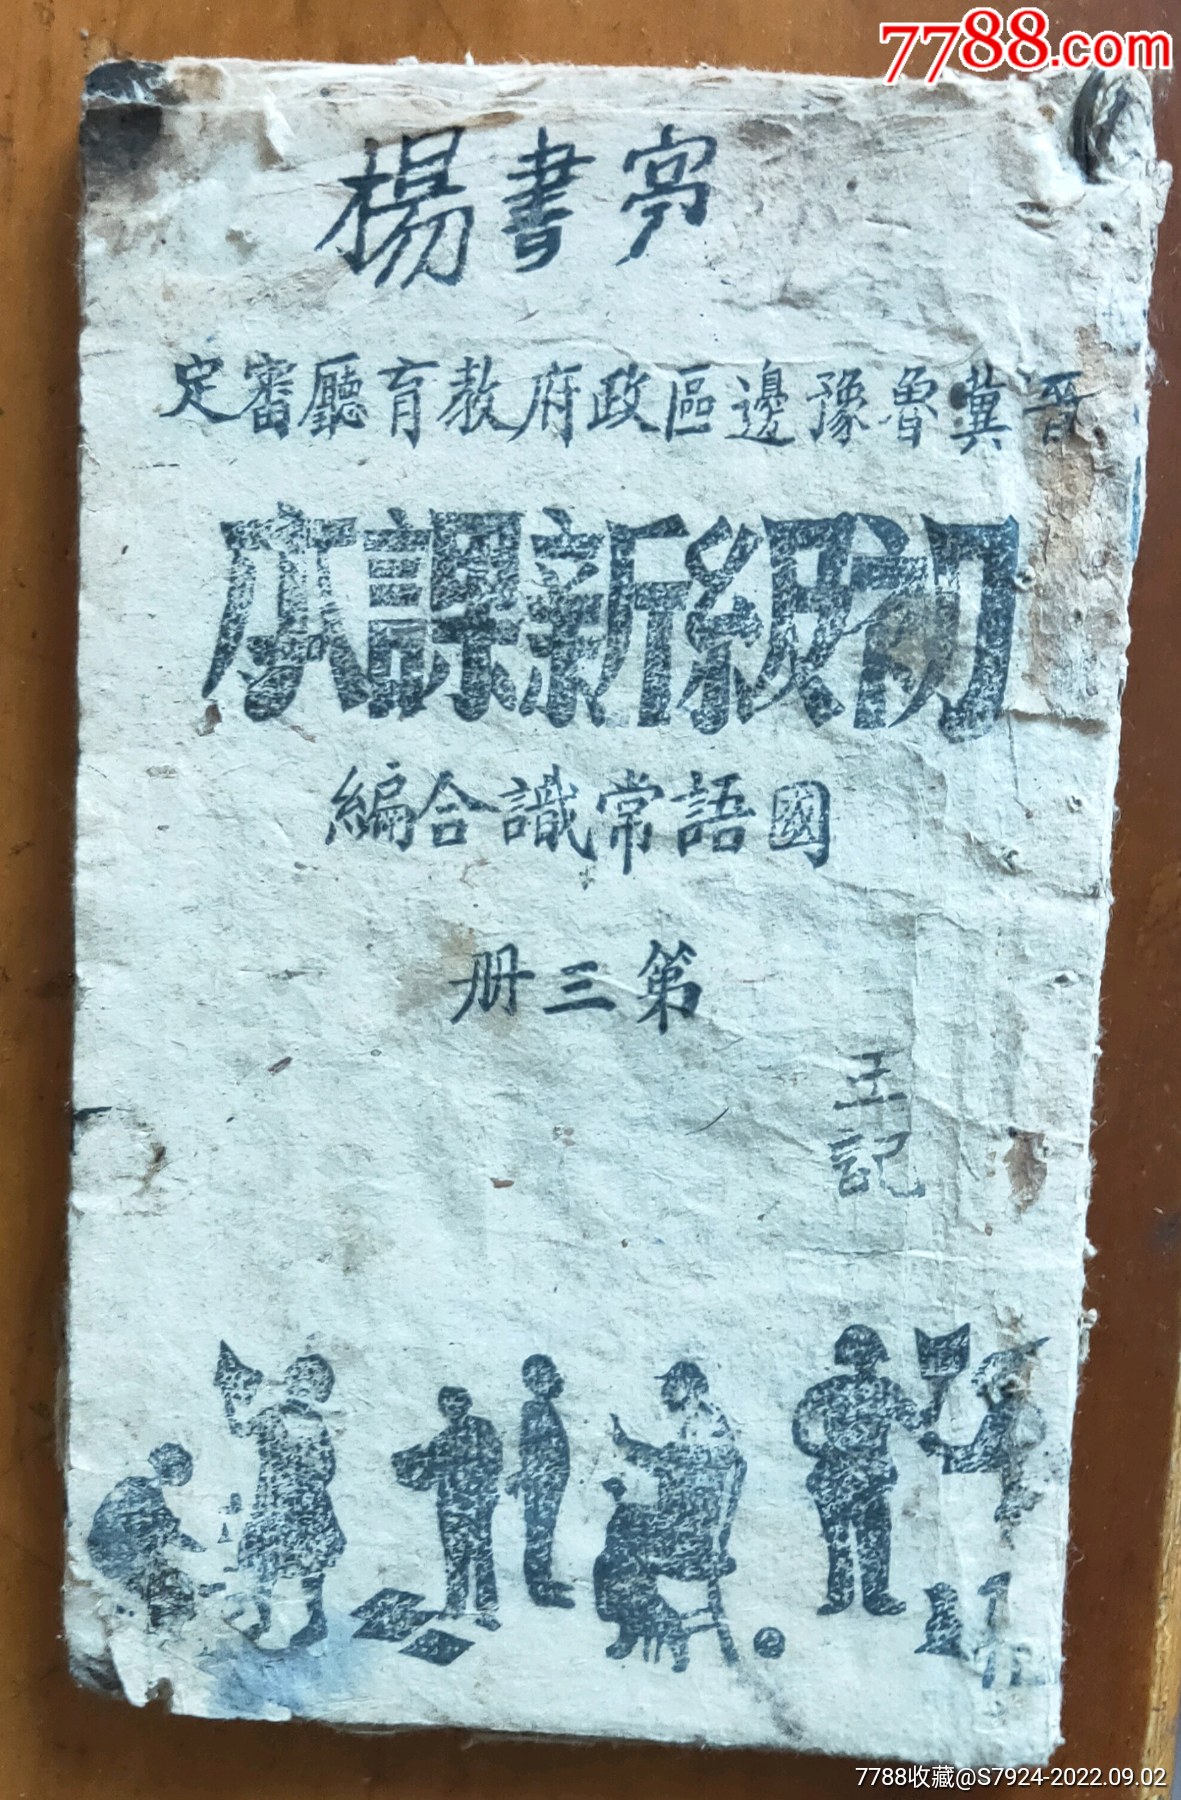 7788.com
楊書亭
晋冀魯豫邊區政府教育廳審定
初級新課本
國語常識合編
第三册
王記
7788收藏@S7924-2022.09.02